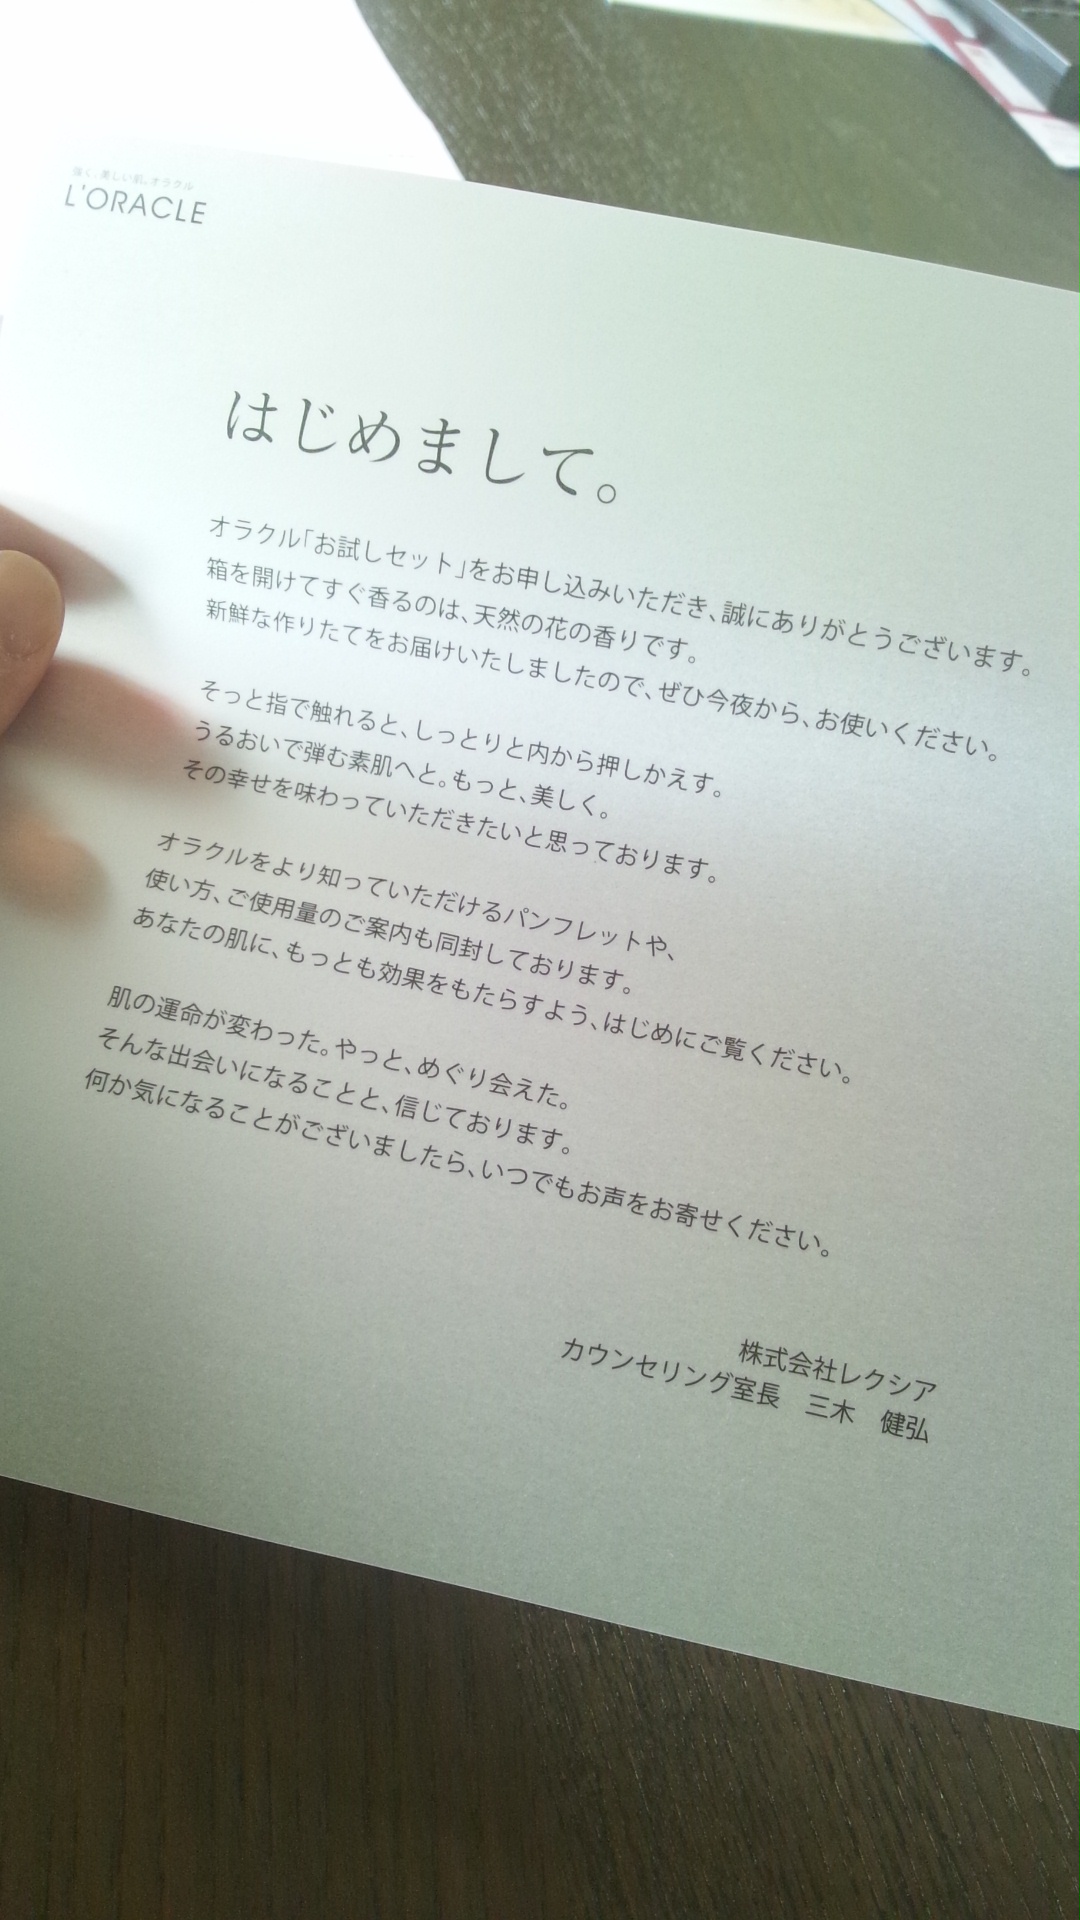 強く、美しい肌。オラクル
L'ORACLE
はじめまして。
オラクル「お試しセット」をお申し込みいただき、誠にありがとうございます。
箱を開けてすぐ香るのは、天然の花の香りです。
新鮮な作りたてをお届けいたしましたので、ぜひ今夜から、お使いください。
そっと指で触れると、しっとりと内から押しかえす。
うるおいで弾む素肌へと。もっと、美しく。
その幸せを味わっていただきたいと思っております。
オラクルをより知っていただけるパンフレットや、
使い方、ご使用量のご案内も同封しております。
あなたの肌に、もっとも効果をもたらすよう、はじめにご覧ください。
肌の運命が変わった。やっと、めぐり会えた。
そんな出会いになることと、信じております。
何か気になることがございましたら、いつでもお声をお寄せください。
株式会社レクシア
カウンセリング室長　三木　健弘